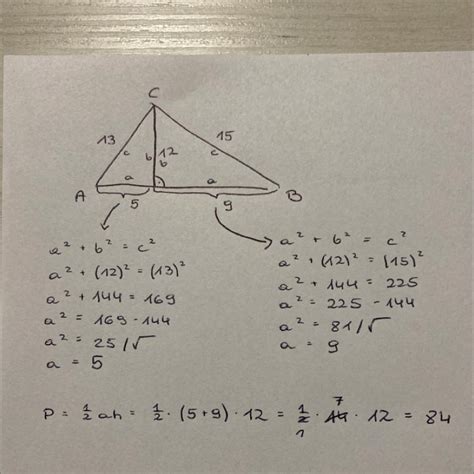 C
13 15
c b 12 c
a b a
A B
5 9
a² + b² = c²
a² + (12)² = (13)²
a² + 144 = 169
a² = 169 - 144
a² = 25 /√
a = 5
a² + b² = c²
a² + (12)² = (15)²
a² + 144 = 225
a² = 225 - 144
a² = 81 /√
a = 9
P = 1/2 ah = 1/2 · (5+9) · 12 = 1/2 · 14 · 12 = 84
7
1